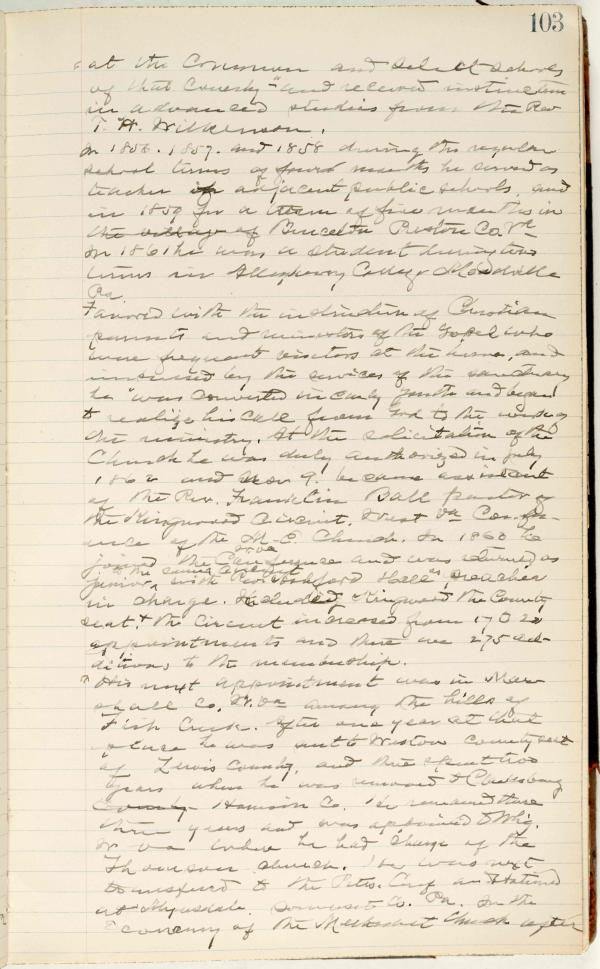 103
"at the Common and select schools
of that County" and received instruction
in advanced studies from the Rev
T. H. Wilkenson.
In 1856. 1857. and 1858 during the regular
school terms of four months he served as
teacher in adjacent public schools, and
in 1859 for a term of five months in
the village of Bruceton Preston Co. Va
In 1861 he was a student during two
terms in Allegheny College Meadville
Pa.
Favored with the instruction of Christian
parents and ministers of the Gospel who
were frequent visitors at the home, and
by the services of the sanctuary
he "was converted in early youth and began
to realize his call from God to the work of
the ministry. At the solicitation of the
Church he was duly authorized in July
1862 and Nov 9. became assistant
of the Rev. Franklin Ball pastor of
the Kingwood Circuit. West Va Confer-
ence of the M. E. Church. In 1863 he
joined the Conference and was returned as
junior, to the same circuit with Rev Ashford Hall "preacher
in charge. Included Kingwood the County
seat, & the Circuit increased from 17 to 20
appointments and there were 275 ad-
ditions to the membership.
"His next appointment was in Mar-
shall Co. W. Va among the hills of
Fish Creek. After one year at that
place he was sent to Weston county seat
of Lewis County, and there spent two
years when he was removed to Clarksburg
County Harrison Co. He remained there
three years and was appointed to Whg.
W Va where he had charge of the
Thomson church. He was next
transferred to the Pitts. Conf and stationed
at Myersdale Somerset Co. Pa. In the
economy of the Methodist Church after